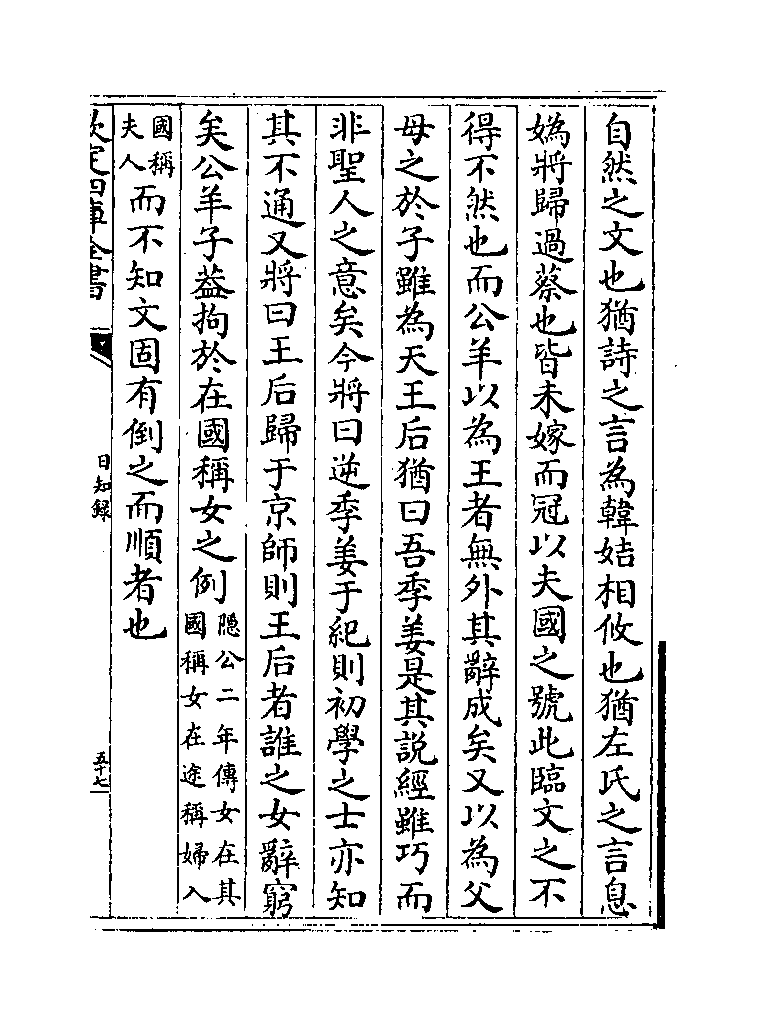 自然之文也猶詩之言為韓姞相攸也猶左氏之言息
媯將歸過蔡也皆未嫁而冠以夫國之號此臨文之不
得不然也而公羊以為王者無外其辭成矣又以為父
母之於子雖為天王后猶曰吾季姜是其說經雖巧而
非聖人之意矣今將曰逆季姜于紀則初學之士亦知
其不通又將曰王后歸于京師則王后者誰之女辭窮
矣公羊子葢拘於在國稱女之例隠公二年傳女在其
國稱女在途稱婦入
國稱
夫人而不知文固有倒之而順者也
欽定四庫全書
日知録
五十七